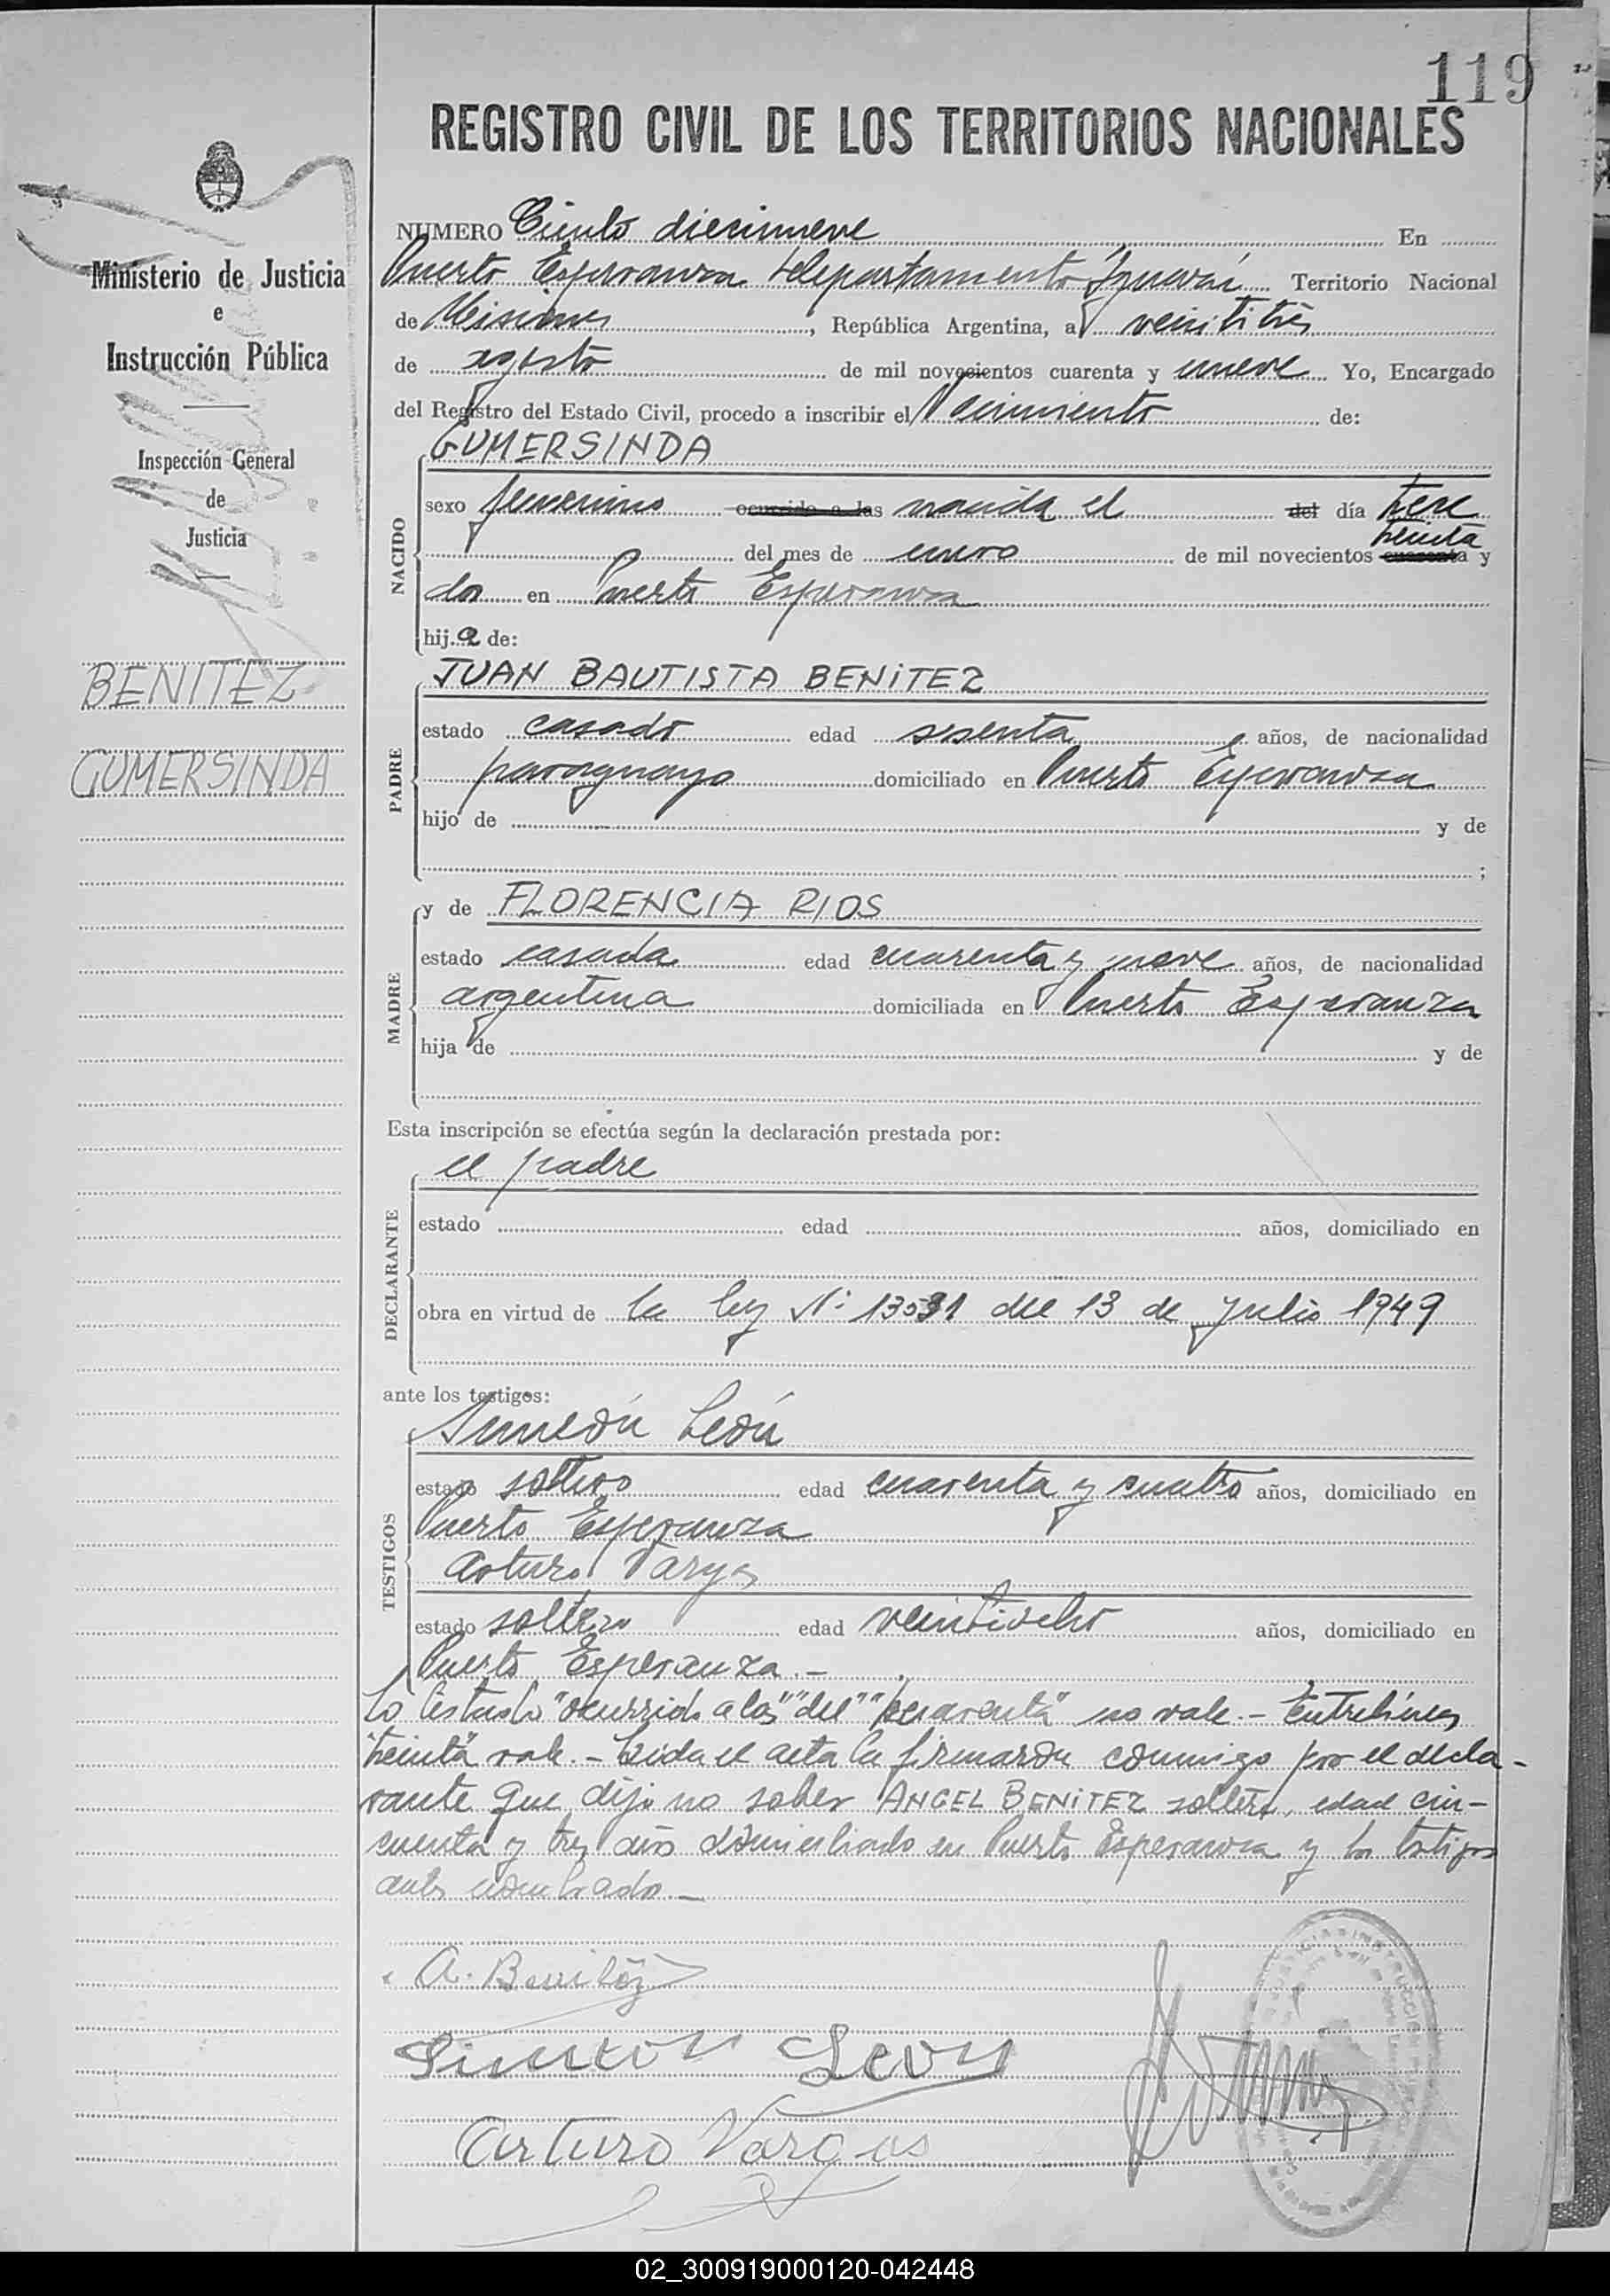 119
REGISTRO CIVIL DE LOS TERRITORIOS NACIONALES
Ministerio de Justicia
e
Instrucción Pública
Inspección General
de
Justicia
BENITEZ
GUMERSINDA
NUMERO Ciento diecinueve En
Puerto Esperanza departamento Iguazú Territorio Nacional
de Misiones, República Argentina, a veintitrés
de agosto de mil novecientos cuarenta y nueve Yo, Encargado
del Registro del Estado Civil, procedo a inscribir el Nacimiento de:
NACIDO
GUMERSINDA
sexo femenino ocurrido a las nacida el del día trece
treinta
del mes de enero de mil novecientos cuarenta y
dos en Puerto Esperanza
hija de:
PADRE
JUAN BAUTISTA BENITEZ
estado casado edad sesenta años, de nacionalidad
paraguayo domiciliado en Puerto Esperanza
hijo de y de
;
MADRE
y de FLORENCIA RIOS
estado casada edad cuarenta y nueve años, de nacionalidad
argentina domiciliada en Puerto Esperanza
hija de y de
Esta inscripción se efectúa según la declaración prestada por:
DECLARANTE
el padre
estado edad años, domiciliado en
obra en virtud de la ley N° 13531 del 13 de julio 1949
ante los testigos:
TESTIGOS
Simeón León
estado soltero edad cuarenta y cuatro años, domiciliado en
Puerto Esperanza
Arturo Vargas
estado soltero edad veintiocho años, domiciliado en
Puerto Esperanza.-
Lo testado "ocurrido a las" "del" "cuarenta" no vale.- Entrelíneas
"treinta" vale.- Leída el acta la firmaron conmigo por el decla-
rante que dijo no saber ANGEL BENITEZ soltero, edad cin-
cuenta y tres años domiciliado en Puerto Esperanza y los testigos
antes nombrados.-
A. Benitez
Simeon Leon
Arturo Vargas
02_300919000120-042448